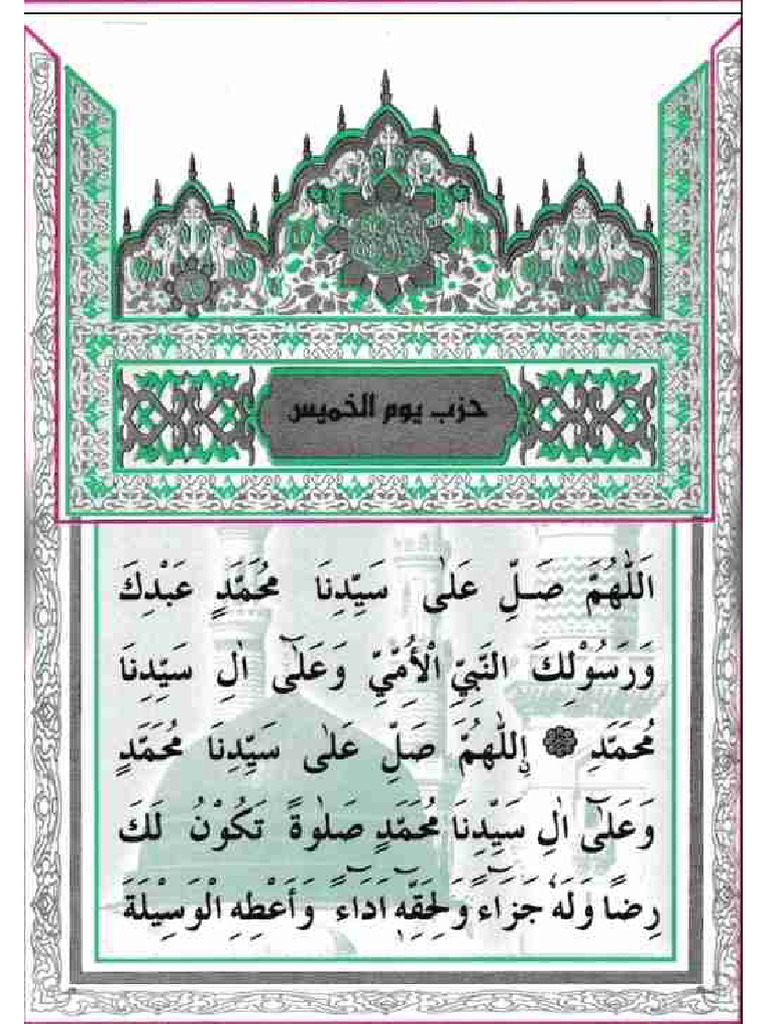 حزب يوم الخميس
اَللّٰهُمَّ صَلِّ عَلٰى سَيِّدِنَا مُحَمَّدٍ عَبْدِكَ
وَرَسُوْلِكَ النَّبِيِّ الْاُمِّيِّ وَعَلٰٓى اٰلِ سَيِّدِنَا
مُحَمَّدِ ۞ اِللّٰهُمَّ صَلِّ عَلٰى سَيِّدِنَا مُحَمَّدٍ
وَعَلٰٓى اٰلِ سَيِّدِنَا مُحَمَّدٍ صَلٰوةً تَكُوْنُ لَكَ
رِضًا وَلَهٗ جَزَآءً وَلِحَقِّهٖٓ اَدَآءً وَاَعْطِهِ الْوَسِيْلَةَ